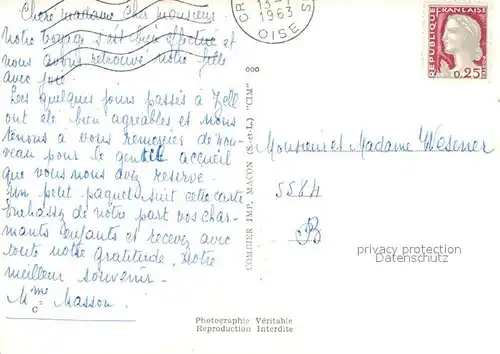 Chère madame Cher monsieur
Notre voyage s'est bien effectué et
nous avons retrouvé notre fille
avec joie.
Les quelques jours passés à Zell
ont été bien agréables et nous
tenons à vous remercier de nou-
veau pour le gentil accueil
que vous nous avez réservé.
Un petit paquet suit cette carte
Embrassez de notre part vos char-
mants enfants et recevez avec
toute notre gratitude. Notre
meilleur souvenir.
Mme Masson.
13-1
1963
OISE
000
COMBIER IMP. MACON (S.-et-L.) "CIM"
REPUBLIQUE FRANÇAISE
0,25
Monsieur et Madame Wesener
5584
B
privacy protection
Datenschutz
Photographie Véritable
Reproduction Interdite